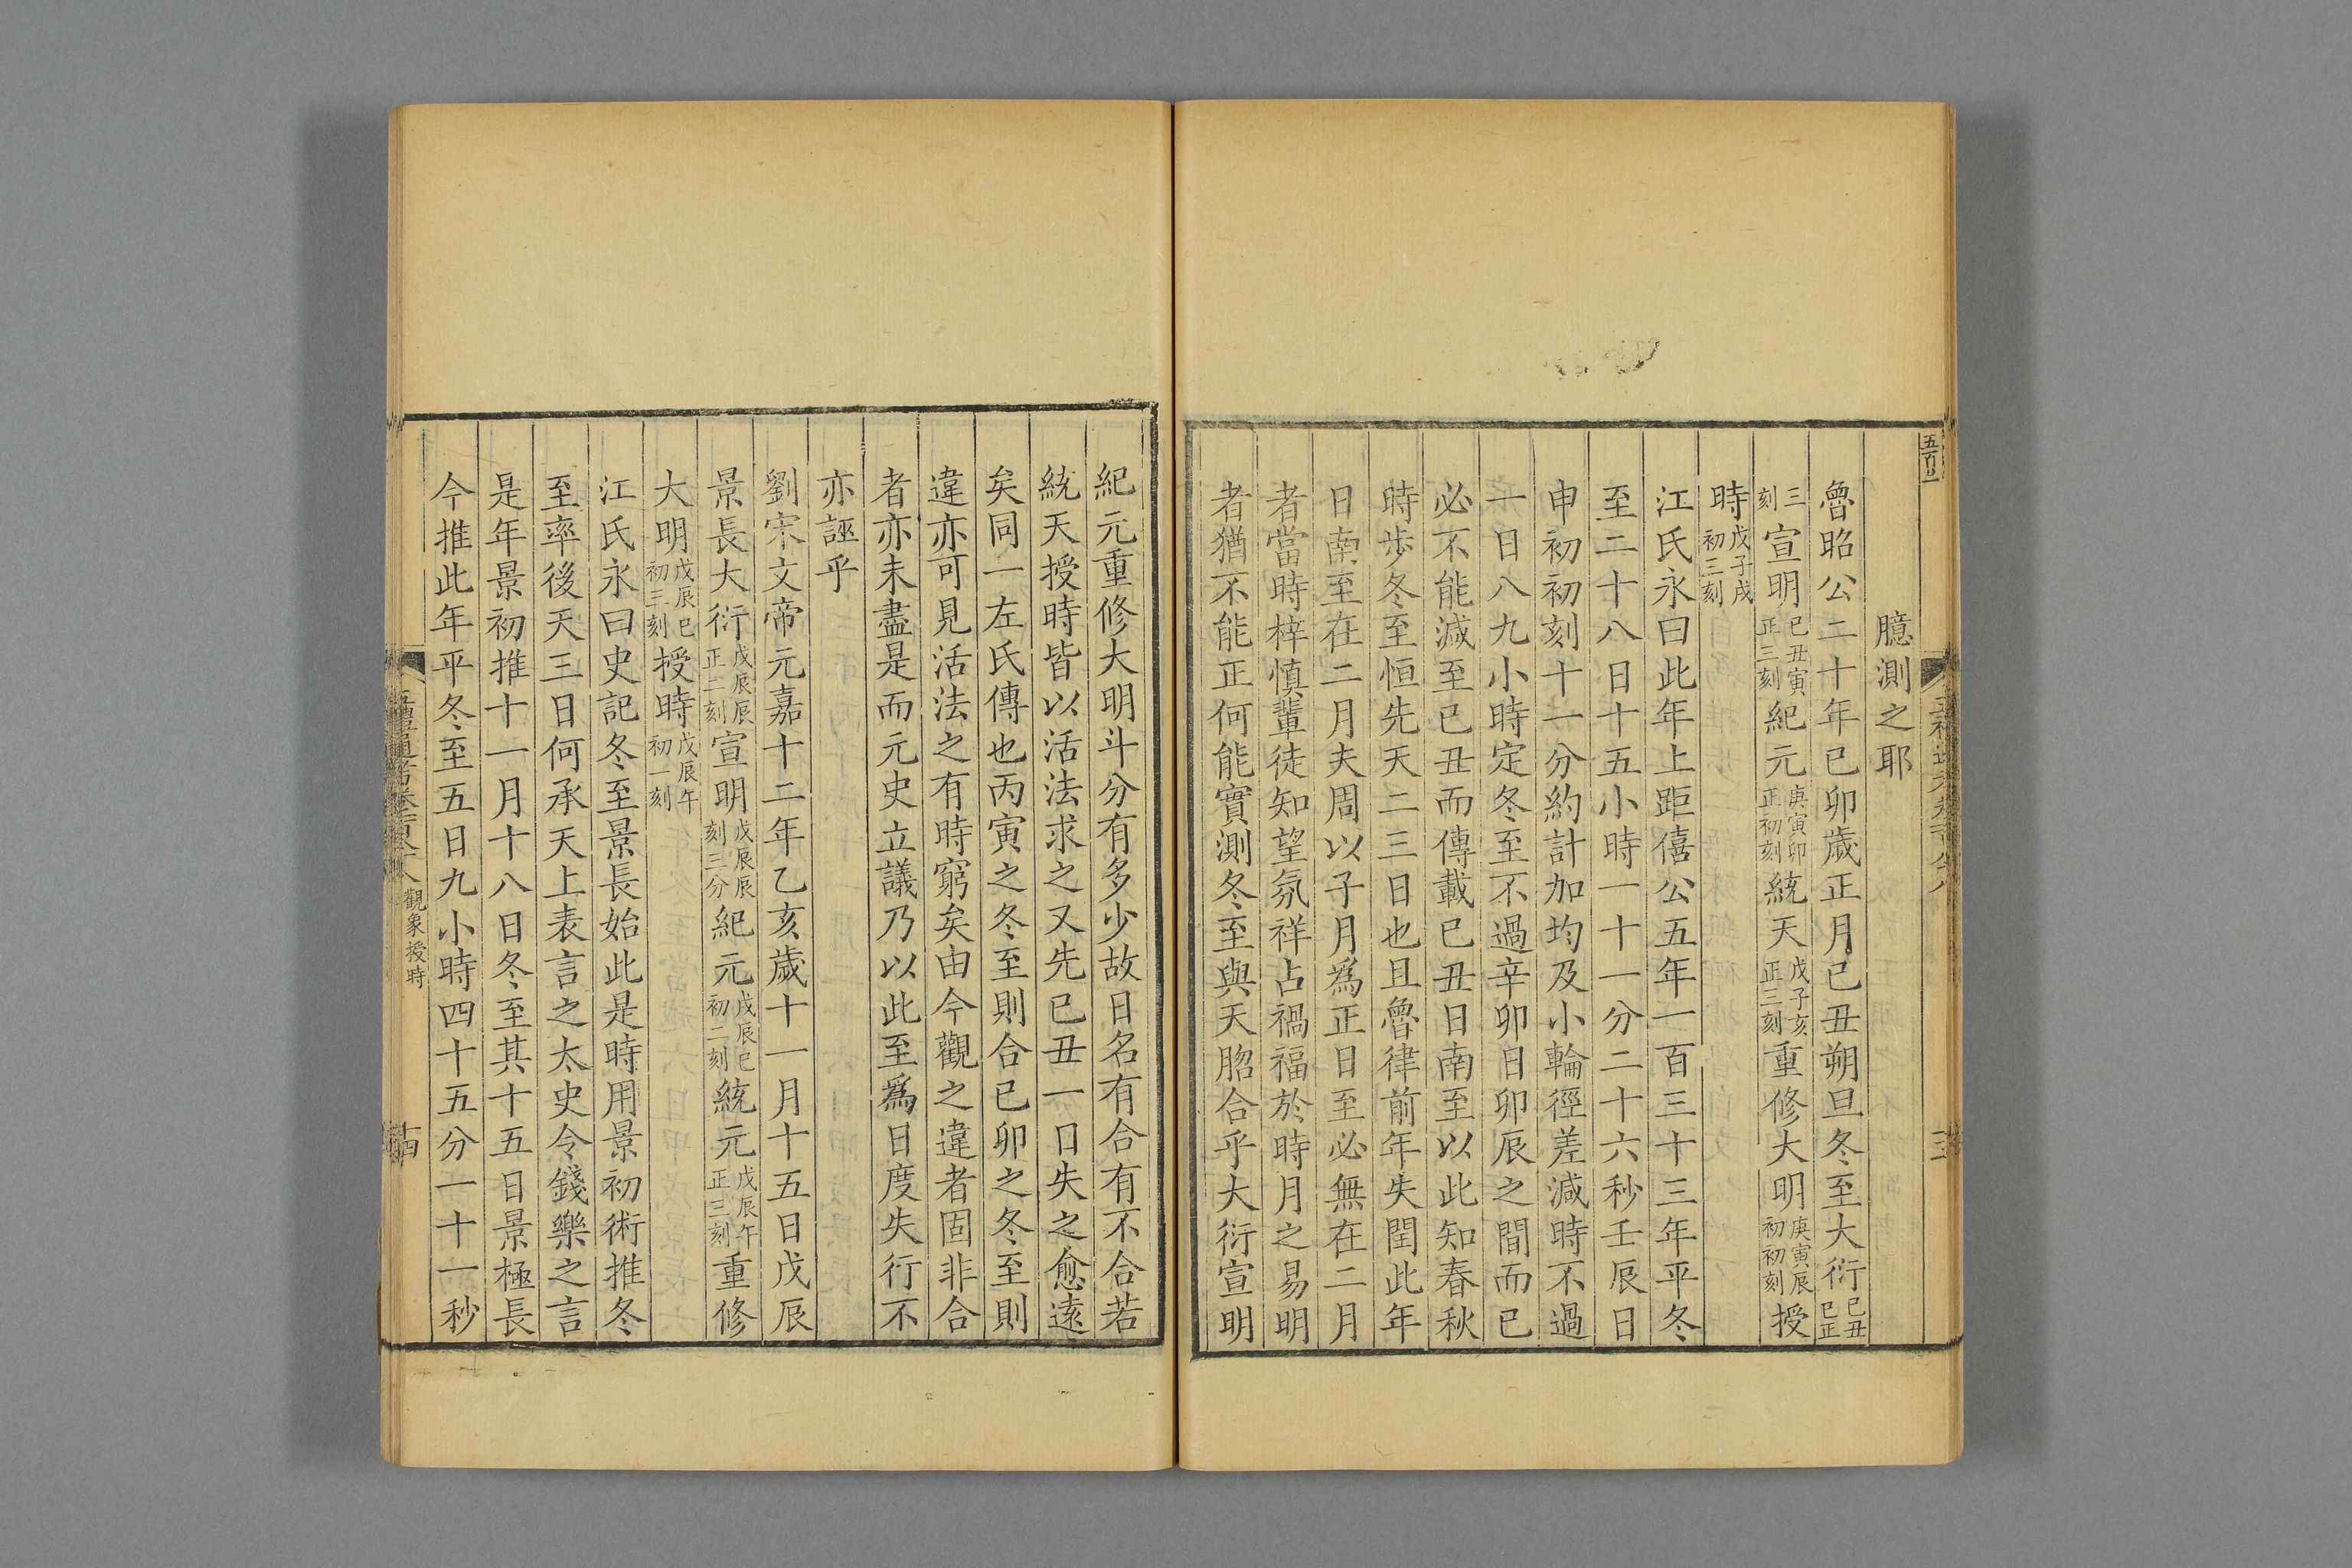 臆測之耶
魯昭公二十年己卯歲正月己丑朔旦冬至大衍己丑巳正
三刻宣明己丑寅正三刻紀元庚寅卯正初刻統天戊子亥正三刻重修大明庚寅辰初初刻授
時戊子戌初三刻
江氏永曰此年上距僖公五年一百三十三年平冬
至二十八日十五小時一十一分二十六秒壬辰日
申初初刻十一分約計加均及小輪徑差減時不過
一日八九小時定冬至不過辛卯日卯辰之間而已
必不能減至己丑而傳載己丑日南至以此知春秋
時步冬至恒先天二三日也且魯律前年失閏此年
日南至在二月夫周以子月為正日至必無在二月
者當時梓慎輩徒知望氛祥占禍福於時月之易明
者猶不能正何能實測冬至與天脗合乎大衍宣明
紀元重修大明斗分有多少故日名有合有不合若
統天授時皆以活法求之又先己丑一日失之愈遠
矣同一左氏傳也丙寅之冬至則合己卯之冬至則
違亦可見活法之有時窮矣由今觀之違者固非合
者亦未盡是而元史立議乃以此至為日度失行不
亦誣乎
劉宋文帝元嘉十二年乙亥歲十一月十五日戊辰
景長大衍戊辰辰正二刻宣明戊辰辰刻三分紀元戊辰巳初二刻統元戊辰午正三刻重修
大明戊辰巳初三刻授時戊辰午初一刻
江氏永曰史記冬至景長始此是時用景初術推冬
至率後天三日何承天上表言之太史令錢樂之言
是年景初推十一月十八日冬至其十五日景極長
今推此年平冬至五日九小時四十五分一十一秒
觀象授時
十四